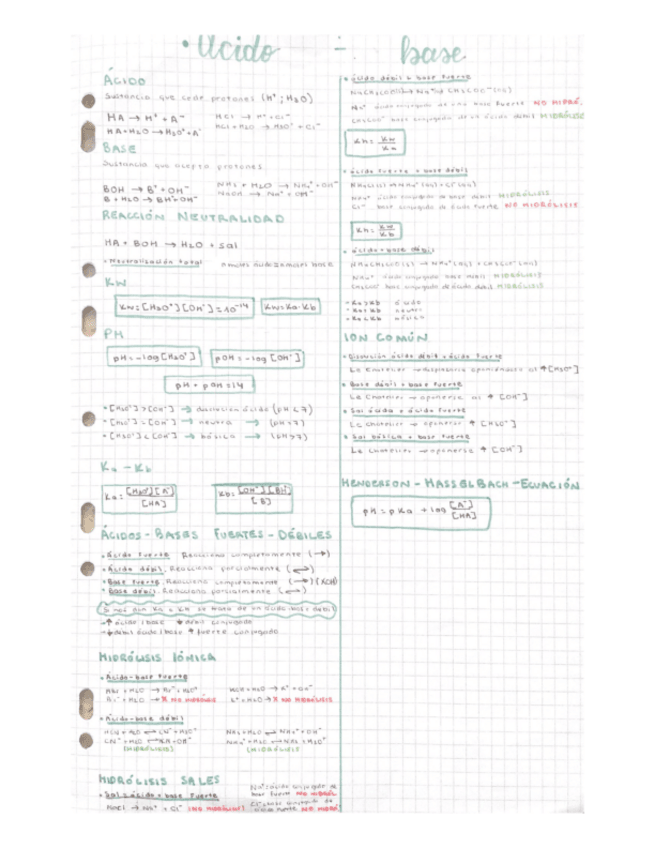 • Ácido - base
ÁCIDO
Sustancia que cede protones (H⁺; H₃O)
HA → H⁺ + A⁻
HCl → H⁺ + Cl⁻
HA + H₂O → H₃O⁺ + A⁻
HCl + H₂O → H₃O⁺ + Cl⁻
BASE
Sustancia que acepta protones.
BOH → B⁺ + OH⁻
NH₃ + H₂O → NH₄⁺ + OH⁻
B + H₂O → BH⁺ + OH⁻
NaOH → Na⁺ + OH⁻
REACCIÓN NEUTRALIDAD
HA + BOH → H₂O + sal
• Neutralización total
KW
Kw = [H₃O⁺][OH⁻] = 10⁻¹⁴
Kw = Ka · Kb
PH
pH = -log[H₃O⁺]
pOH = -log[OH⁻]
pH + pOH = 14
• [H₃O⁺] > [OH⁻] → disolución ácida (pH < 7)
• [H₃O⁺] = [OH⁻] → neutra → (pH = 7)
• [H₃O⁺] < [OH⁻] → básica → (pH > 7)
Ka - Kb
Ka = [H₃O⁺][A⁻] / [HA]
Kb = [OH⁻][BH⁺] / [B]
ÁCIDOS - BASES FUERTES - DÉBILES
• Ácido fuerte: Reacciona completamente (→)
• Ácido débil: Reacciona parcialmente (⇌)
• Base fuerte: Reacciona completamente (→)
• Base débil: Reacciona parcialmente (⇌)
Si nos dan Ka o Kb se trata de un ácido-base débil
→ ↑ ácido/base ↓ débil conjugado
→ ↓ débil ácido/base ↑ fuerte conjugado
HIDRÓLISIS IÓNICA
• Ácido-base fuerte
NO HIDRÓLISIS
NO HIDRÓLISIS
• Ácido-base débil
NH₃ + H₂O ⇌ NH₄⁺ + OH⁻
(HIDRÓLISIS)
(HIDRÓLISIS)
HIDRÓLISIS SALES
• Sal: ácido + base fuerte
NaCl → Na⁺ + Cl⁻ (NO HIDRÓLISIS)
Na⁺: ácido conjugado de
base fuerte NO HIDRÓL
Cl⁻: base conjugada de
NO HIDRÓ
• ácido débil + base fuerte
Na⁺ ácido conjugado de una base fuerte NO HIDRÓ.
CH₃COO⁻ base conjugada de un ácido débil HIDRÓLISIS
Kh = Kw / Ka
• ácido fuerte + base débil
NH₄⁺ ácido conjugado de base débil HIDRÓLISIS
Cl⁻ base conjugada de ácido fuerte NO HIDRÓLISIS
Kh = Kw / Kb
• ácido + base débil
NH₄⁺ ácido conjugado base débil HIDRÓLISIS
CH₃COO⁻ base conjugada de ácido débil HIDRÓLISIS
- Ka > Kb ácida
- Ka = Kb neutra
- Ka < Kb básica
ION COMÚN
• Disolución ácido débil + ácido fuerte
Le Chatelier → desplazaría oponiéndose al ↑ [H₃O⁺]
• Base débil + base fuerte
Le Chatelier → oponerse al ↑ [OH⁻]
• Sal ácida + ácido fuerte
Le Chatelier → oponerse ↑ [H₃O⁺]
• Sal básica + base fuerte
Le Chatelier → oponerse ↑ [OH⁻]
HENDERSON - HASSELBACH - ECUACIÓN
pH = pKa + log [A⁻] / [HA]